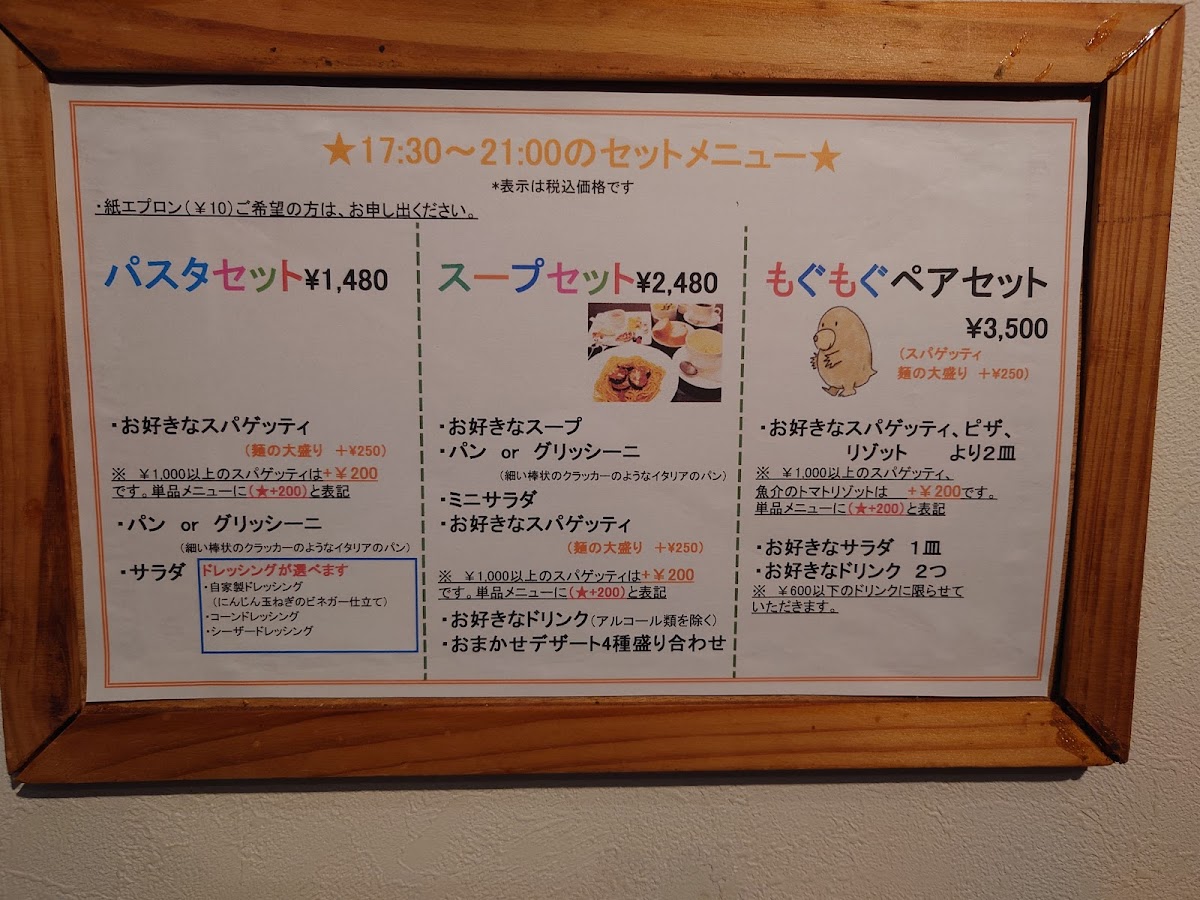 ★17:30～21:00のセットメニュー★
*表示は税込価格です
・紙エプロン(￥10)ご希望の方は、お申し出ください。
パスタセット¥1,480
・お好きなスパゲッティ
(麺の大盛り ＋¥250)
※ ￥1,000以上のスパゲッティは＋￥200
です。単品メニューに(★+200)と表記
・パン or グリッシーニ
(細い棒状のクラッカーのようなイタリアのパン)
・サラダ
ドレッシングが選べます
・自家製ドレッシング
(にんじん玉ねぎのビネガー仕立て)
・コーンドレッシング
・シーザードレッシング
スープセット¥2,480
・お好きなスープ
・パン or グリッシーニ
(細い棒状のクラッカーのようなイタリアのパン)
・ミニサラダ
・お好きなスパゲッティ
(麺の大盛り ＋¥250)
※ ￥1,000以上のスパゲッティは＋￥200
です。単品メニューに(★+200)と表記
・お好きなドリンク(アルコール類を除く)
・おまかせデザート4種盛り合わせ
もぐもぐペアセット
¥3,500
(スパゲッティ
麺の大盛り ＋¥250)
・お好きなスパゲッティ、ピザ、
リゾット より２皿
※ ￥1,000以上のスパゲッティ、
魚介のトマトリゾットは ＋￥200です。
単品メニューに(★+200)と表記
・お好きなサラダ １皿
・お好きなドリンク ２つ
※ ￥600以下のドリンクに限らせて
いただきます。